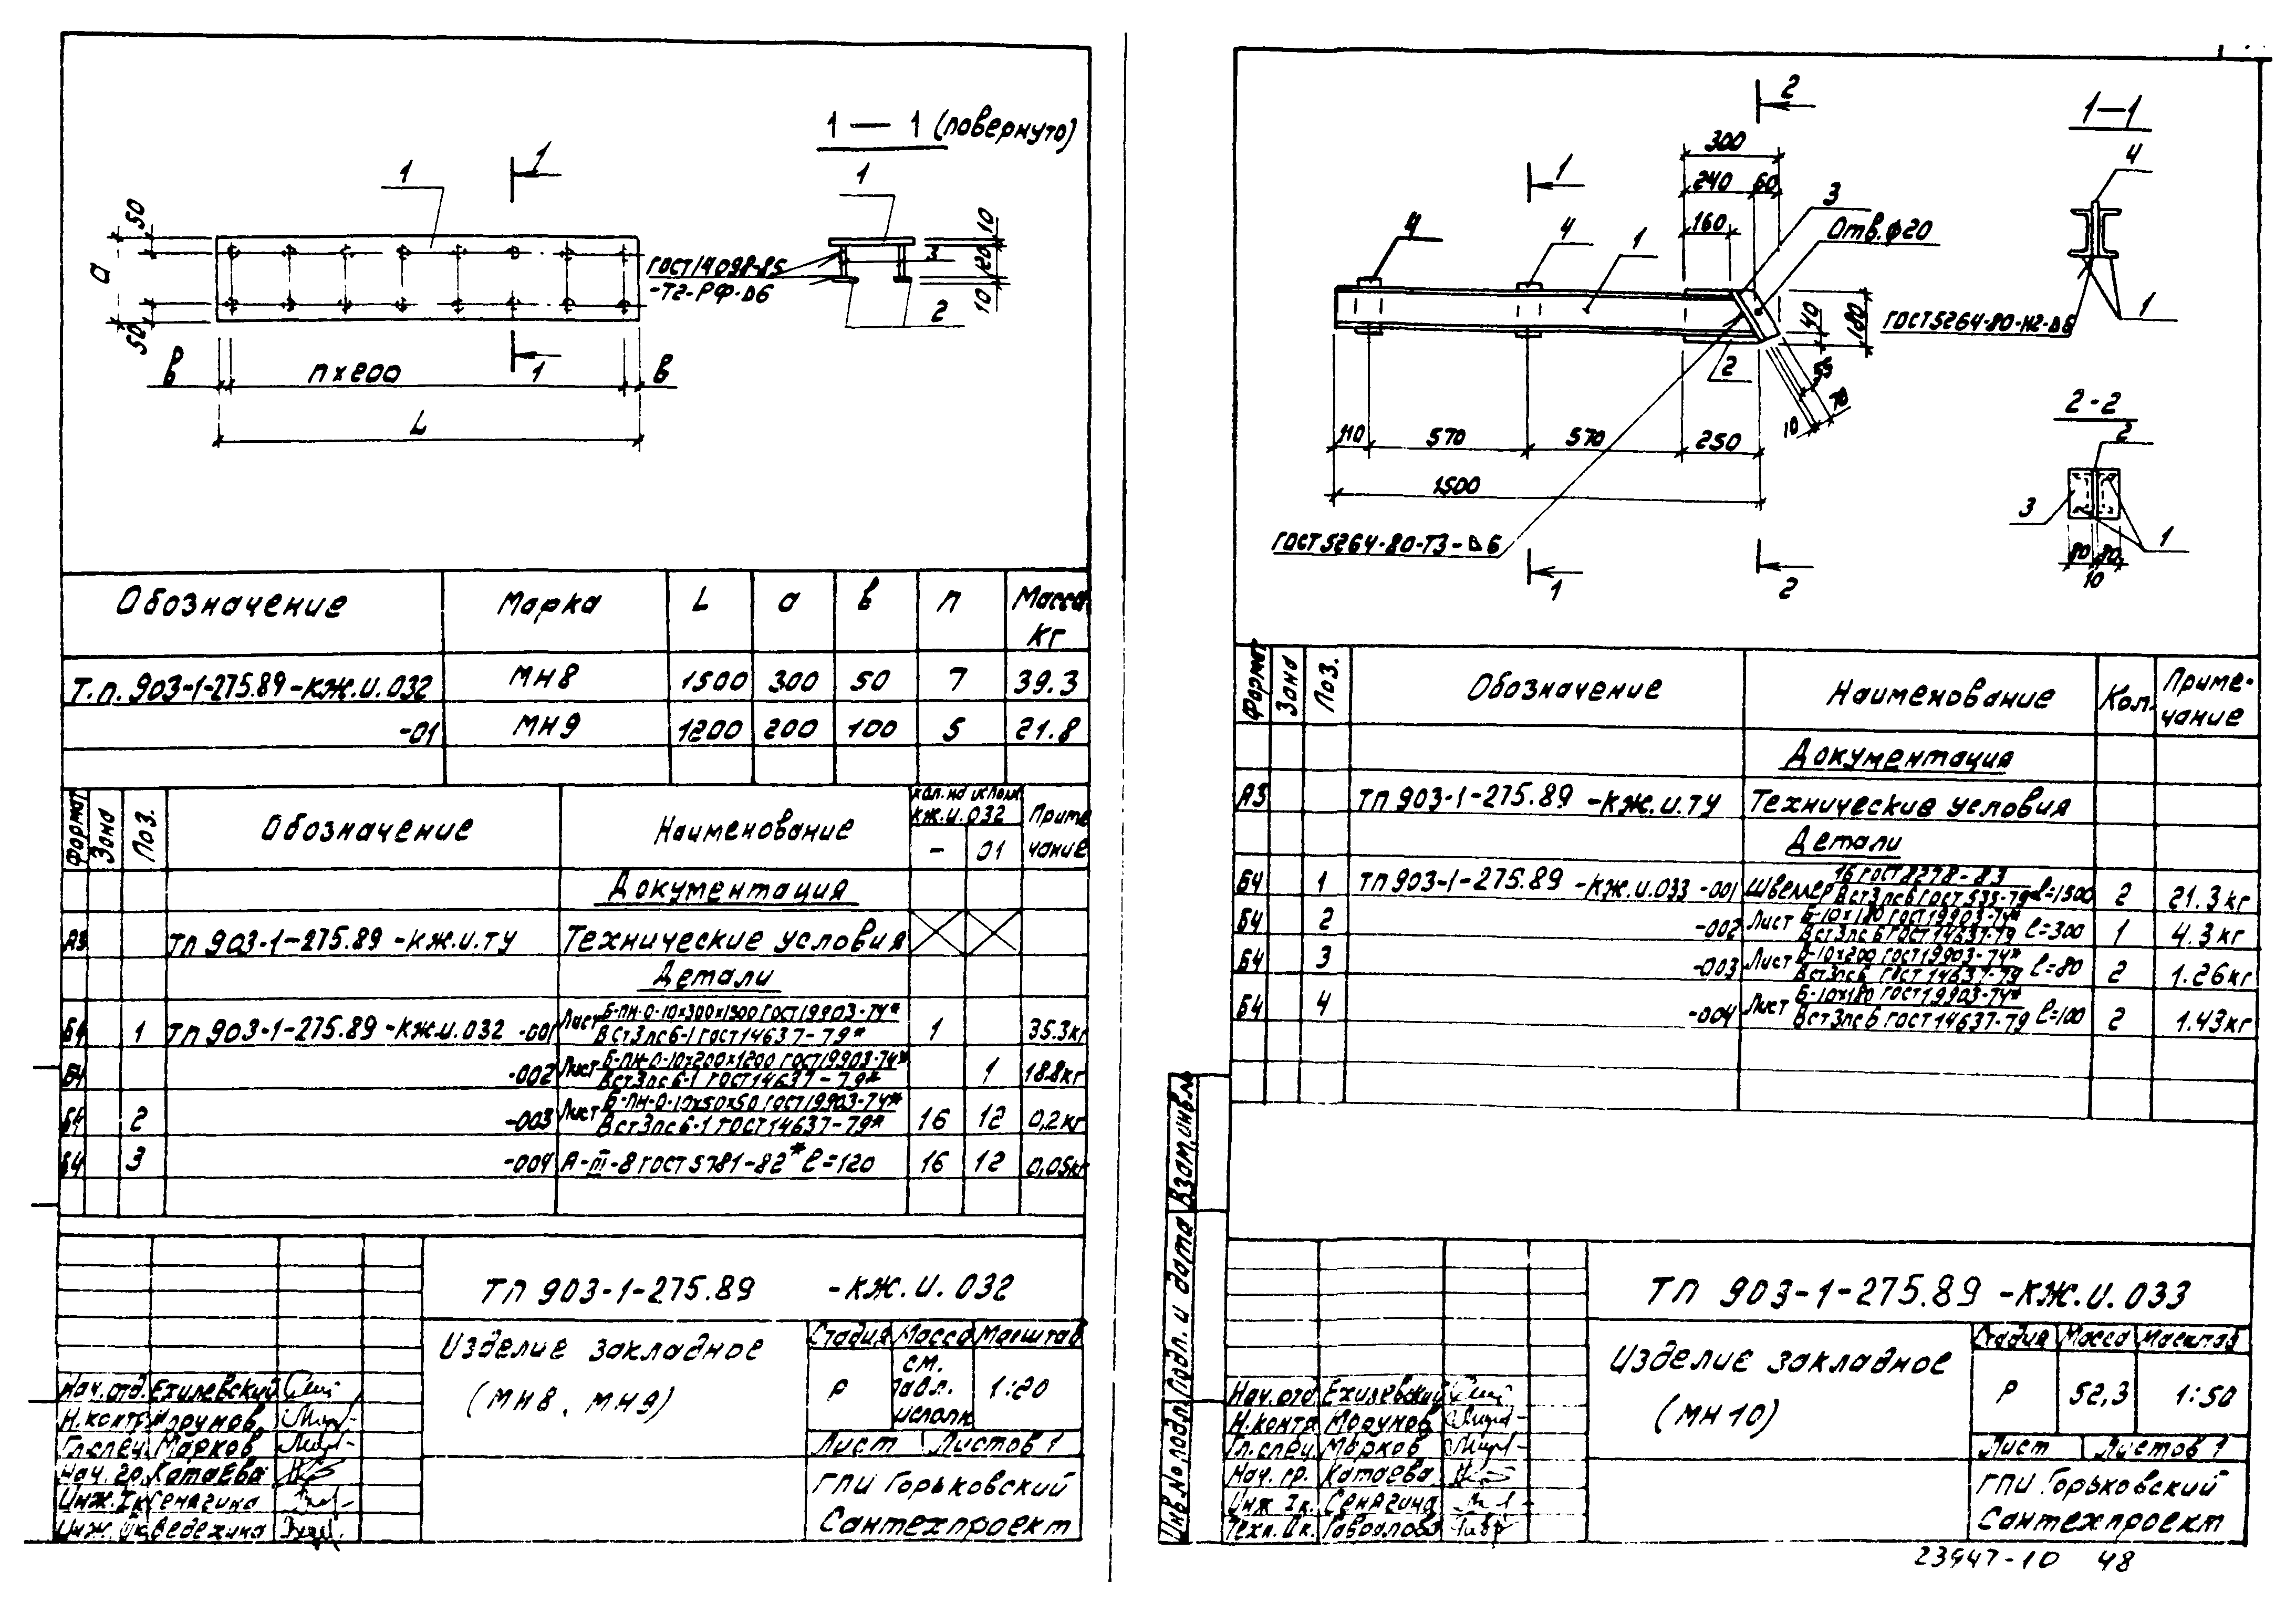 1 — 1 (повернуто)
1
1
1
50
а
50
ГОСТ 14098-85
-Т2-РФ-Δ6
10
3
120
10
2
в
n х 200
1
в
L
Обозначение Марка L а в n Масса кг
Т.п. 903-1-275.89-КЖ.И.032 МН8 1500 300 50 7 39.3
-01 МН9 1200 200 100 5 21.8
Формат Зона Поз. Обозначение Наименование Кол. на исполн. КЖ.И.032 - 01 Примечание
Документация
А3 ТП 903-1-275.89-КЖ.И.ТУ Технические условия
Детали
Б4 1 ТП 903-1-275.89-КЖ.И.032 -001 Лист Б-ПН-О-10х300х1500 ГОСТ 19903-74* 1 35.3кг
ВСт3пс6-1 ГОСТ 14637-79*
Б4 -002 Лист Б-ПН-О-10х200х1200 ГОСТ 19903-74* 1 18.8кг
ВСт3пс6-1 ГОСТ 14637-79*
Б4 2 -003 Лист Б-ПН-О-10х50х50 ГОСТ 19903-74* 16 12 0,2кг
ВСт3пс6-1 ГОСТ 14637-79*
Б4 3 -004 А-III-8 ГОСТ 5781-82* ℓ=120 16 12 0,05кг
ТП 903-1-275.89 -КЖ.И.032
Изделие закладное
(МН8, МН9)
Стадия Масса Масштаб
Р см. табл. исполн. 1:20
Лист Листов 1
ГПИ Горьковский
Сантехпроект
Нач.отд. Ехилевский
Н.контр.
Гл.спец. Марков
Нач.гр. Катаева
Инж. Iк. Сенягина
Инж. IIк. Ведехина
2
1
300
240 60
160
3
Отв. ф20
4
4
1
40
180
2
55
70
10
110 570 570 250
1500
ГОСТ 5264-80-Т3-Δ6
1
2
1—1
4
ГОСТ 5264-80-Н2-Δ6
1
2-2
2
3
1
80 80
10
Формат Зона Поз. Обозначение Наименование Кол. Примечание
Документация
А3 ТП 903-1-275.89 -КЖ.И.ТУ Технические условия
Детали
Б4 1 ТП 903-1-275.89 -КЖ.И.033 -001 Швеллер 16 ГОСТ 8278-83 ℓ=1500 2 21.3кг
ВСт3пс6 ГОСТ 535-79
Б4 2 -002 Лист Б-10х180 ГОСТ 19903-74* ℓ=300 1 4.3кг
ВСт3пс6 ГОСТ 14637-79
Б4 3 -003 Лист Б-10х200 ГОСТ 19903-74* ℓ=80 2 1.26кг
ВСт3пс6 ГОСТ 14637-79
Б4 4 -004 Лист Б-10х180 ГОСТ 19903-74* ℓ=100 2 1.43кг
ВСт3пс6 ГОСТ 14637-79
Взам.инв.№
Подп. и дата
Инв.№ подл.
ТП 903-1-275.89 -КЖ.И.033
Изделие закладное
(МН10)
Стадия Масса Масштаб
Р 52,3 1:50
Лист Листов 1
ГПИ Горьковский
Сантехпроект
Нач.отд. Ехилевский
Н.контр.
Гл.спец. Марков
Нач. гр. Катаева
Инж Iк. Сенягина
Техн. IIк.
23947-10 48